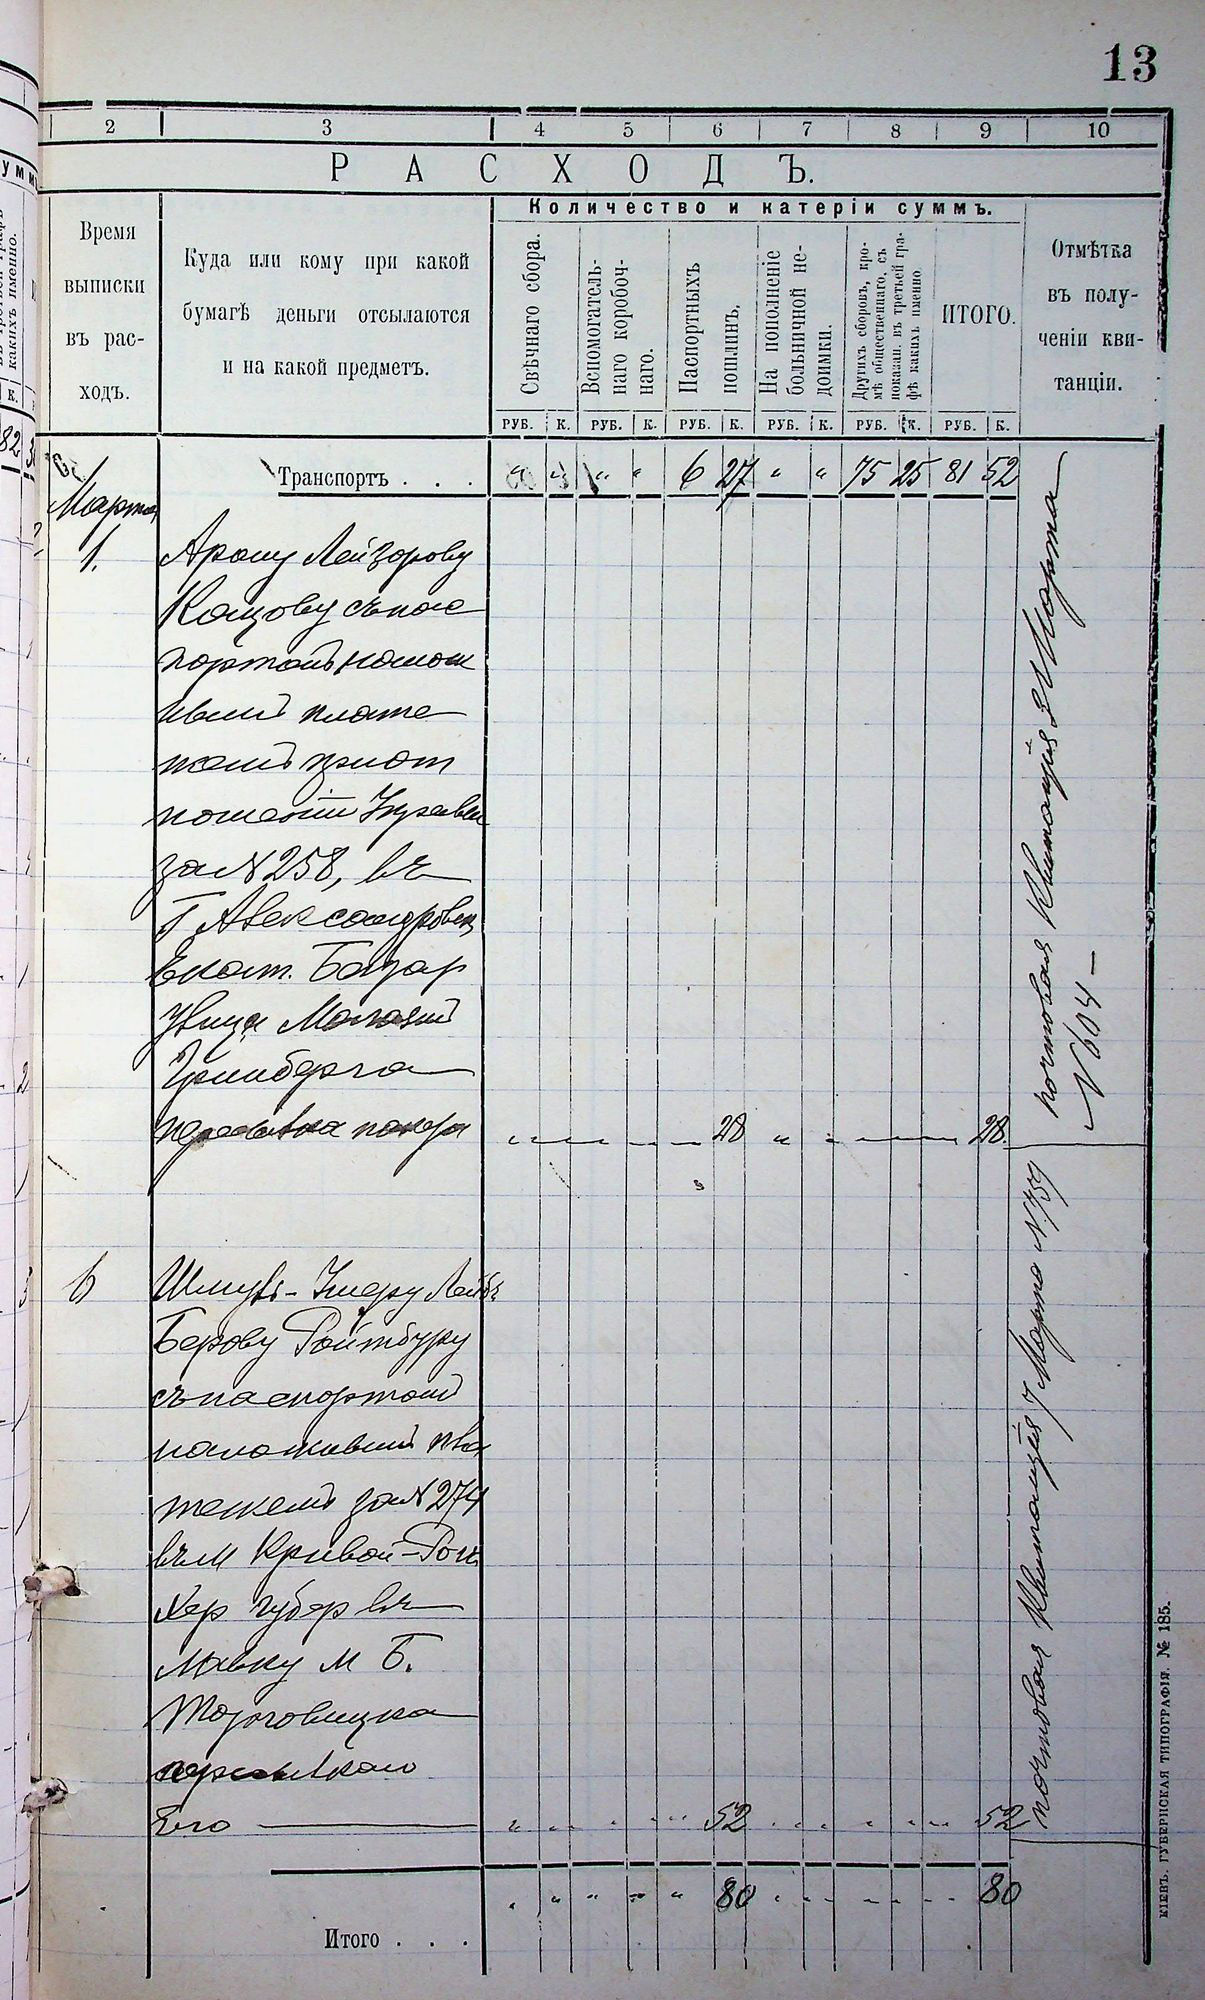 13
2 3 4 5 6 7 8 9 10
РАСХОДЪ.
Количество и катеріи суммъ.
Время
выписки
въ рас-
ходъ.
Куда или кому при какой
бумагѣ деньги отсылаются
и на какой предметъ.
Свѣчнаго сбора.
Вспомогатель-
наго коробоч-
наго.
Паспортныхъ
пошлинъ.
На пополненіе
больничной не-
доимки.
Другихъ сборовъ, кро-
мѣ общественнаго, съ
показан. въ третьей гра-
фѣ какихъ именно
ИТОГО.
Отмѣтка
въ полу-
ченіи кви-
танціи.
РУБ. К. РУБ. К. РУБ. К. РУБ. К. РУБ. К. РУБ. К.
Транспортъ . . . " " " " 6 27 " " 75 25 81 52
Марта
1. Арону Лейзорову
Кацову съ пас
портомъ налож
нымъ плате
жемъ при от
ношеніи Управы
за № 258, въ
Г. Александровскъ
Екат. Базар
улица Магазин
Гринберга
пересылка 28 28
почтовая Квитанція 2 Марта
№ 604 –
6 Шмулъ-Умеру Лейбъ
Берову Ройтбуру
съ паспортомъ
наложнымъ пла
тежемъ за № 274
въ м Кривой-Рогъ
Хер губер въ
лавку М Б.
Торговицка
пересылкою
Его 52 52
почтовая Квитанція 7 Марта № 759
80 80
Итого . . .
КІЕВЪ. ГУБЕРНСКАЯ ТИПОГРАФІЯ. № 185.